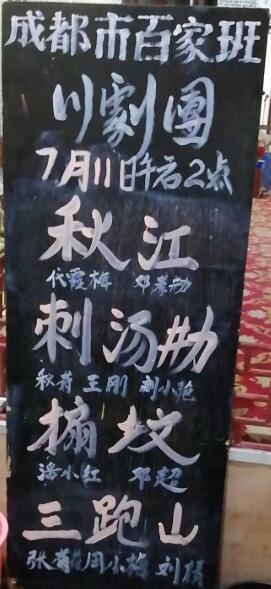 成都市百家班
川劇團
7月11日午后2点
秋江
代霞梅 邓孝勋
刺汤勤
秋菊 王刚 刘小艳
搧坟
潘小红 邓超
三跑山
张菊花 周小梅 刘倩